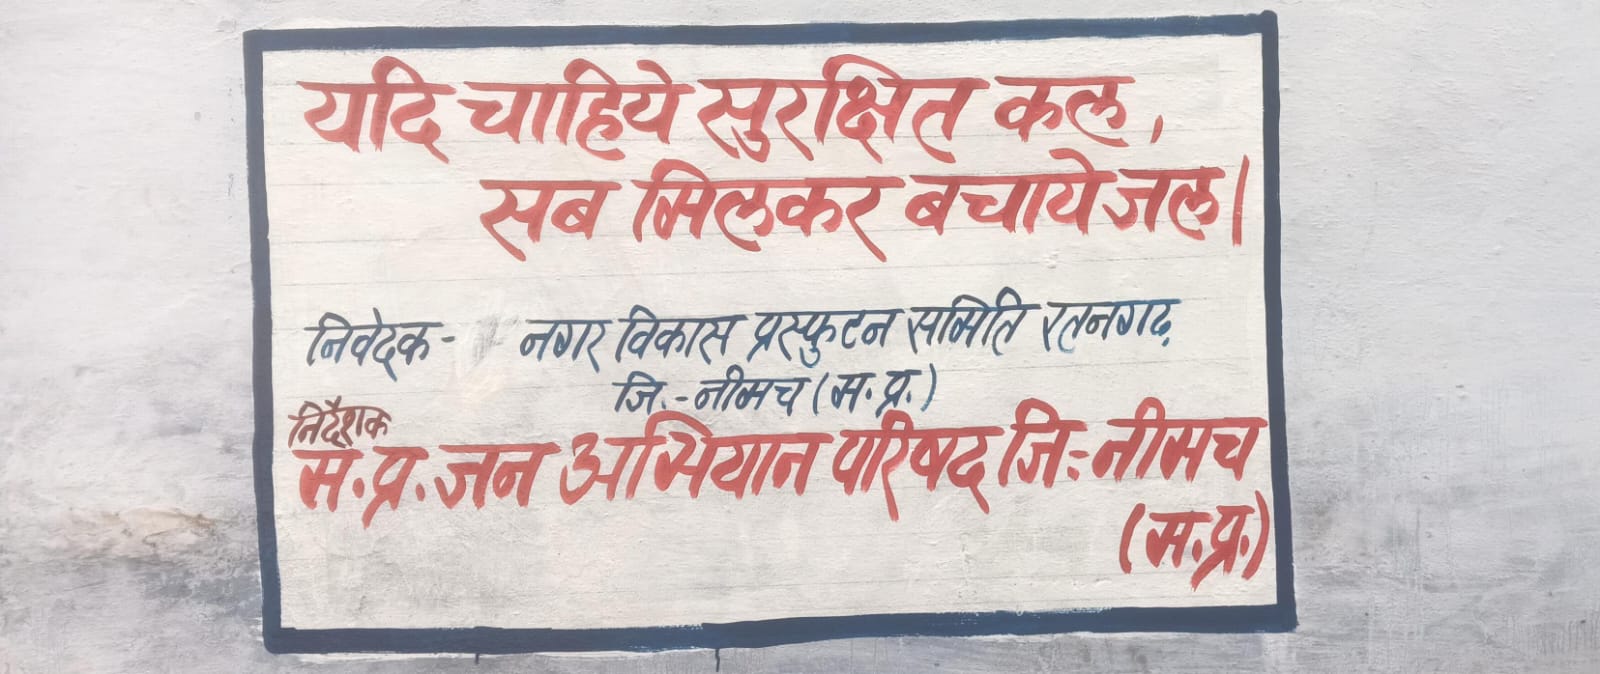 यदि चाहिये सुरक्षित कल,
सब मिलकर बचाये जल।
निवेदक- नगर विकास प्रस्फुटन समिति रतनगढ़
जि.-नीमच (म.प्र.)
निर्देशक
म.प्र. जन अभियान परिषद जि:- नीमच
(म.प्र.)